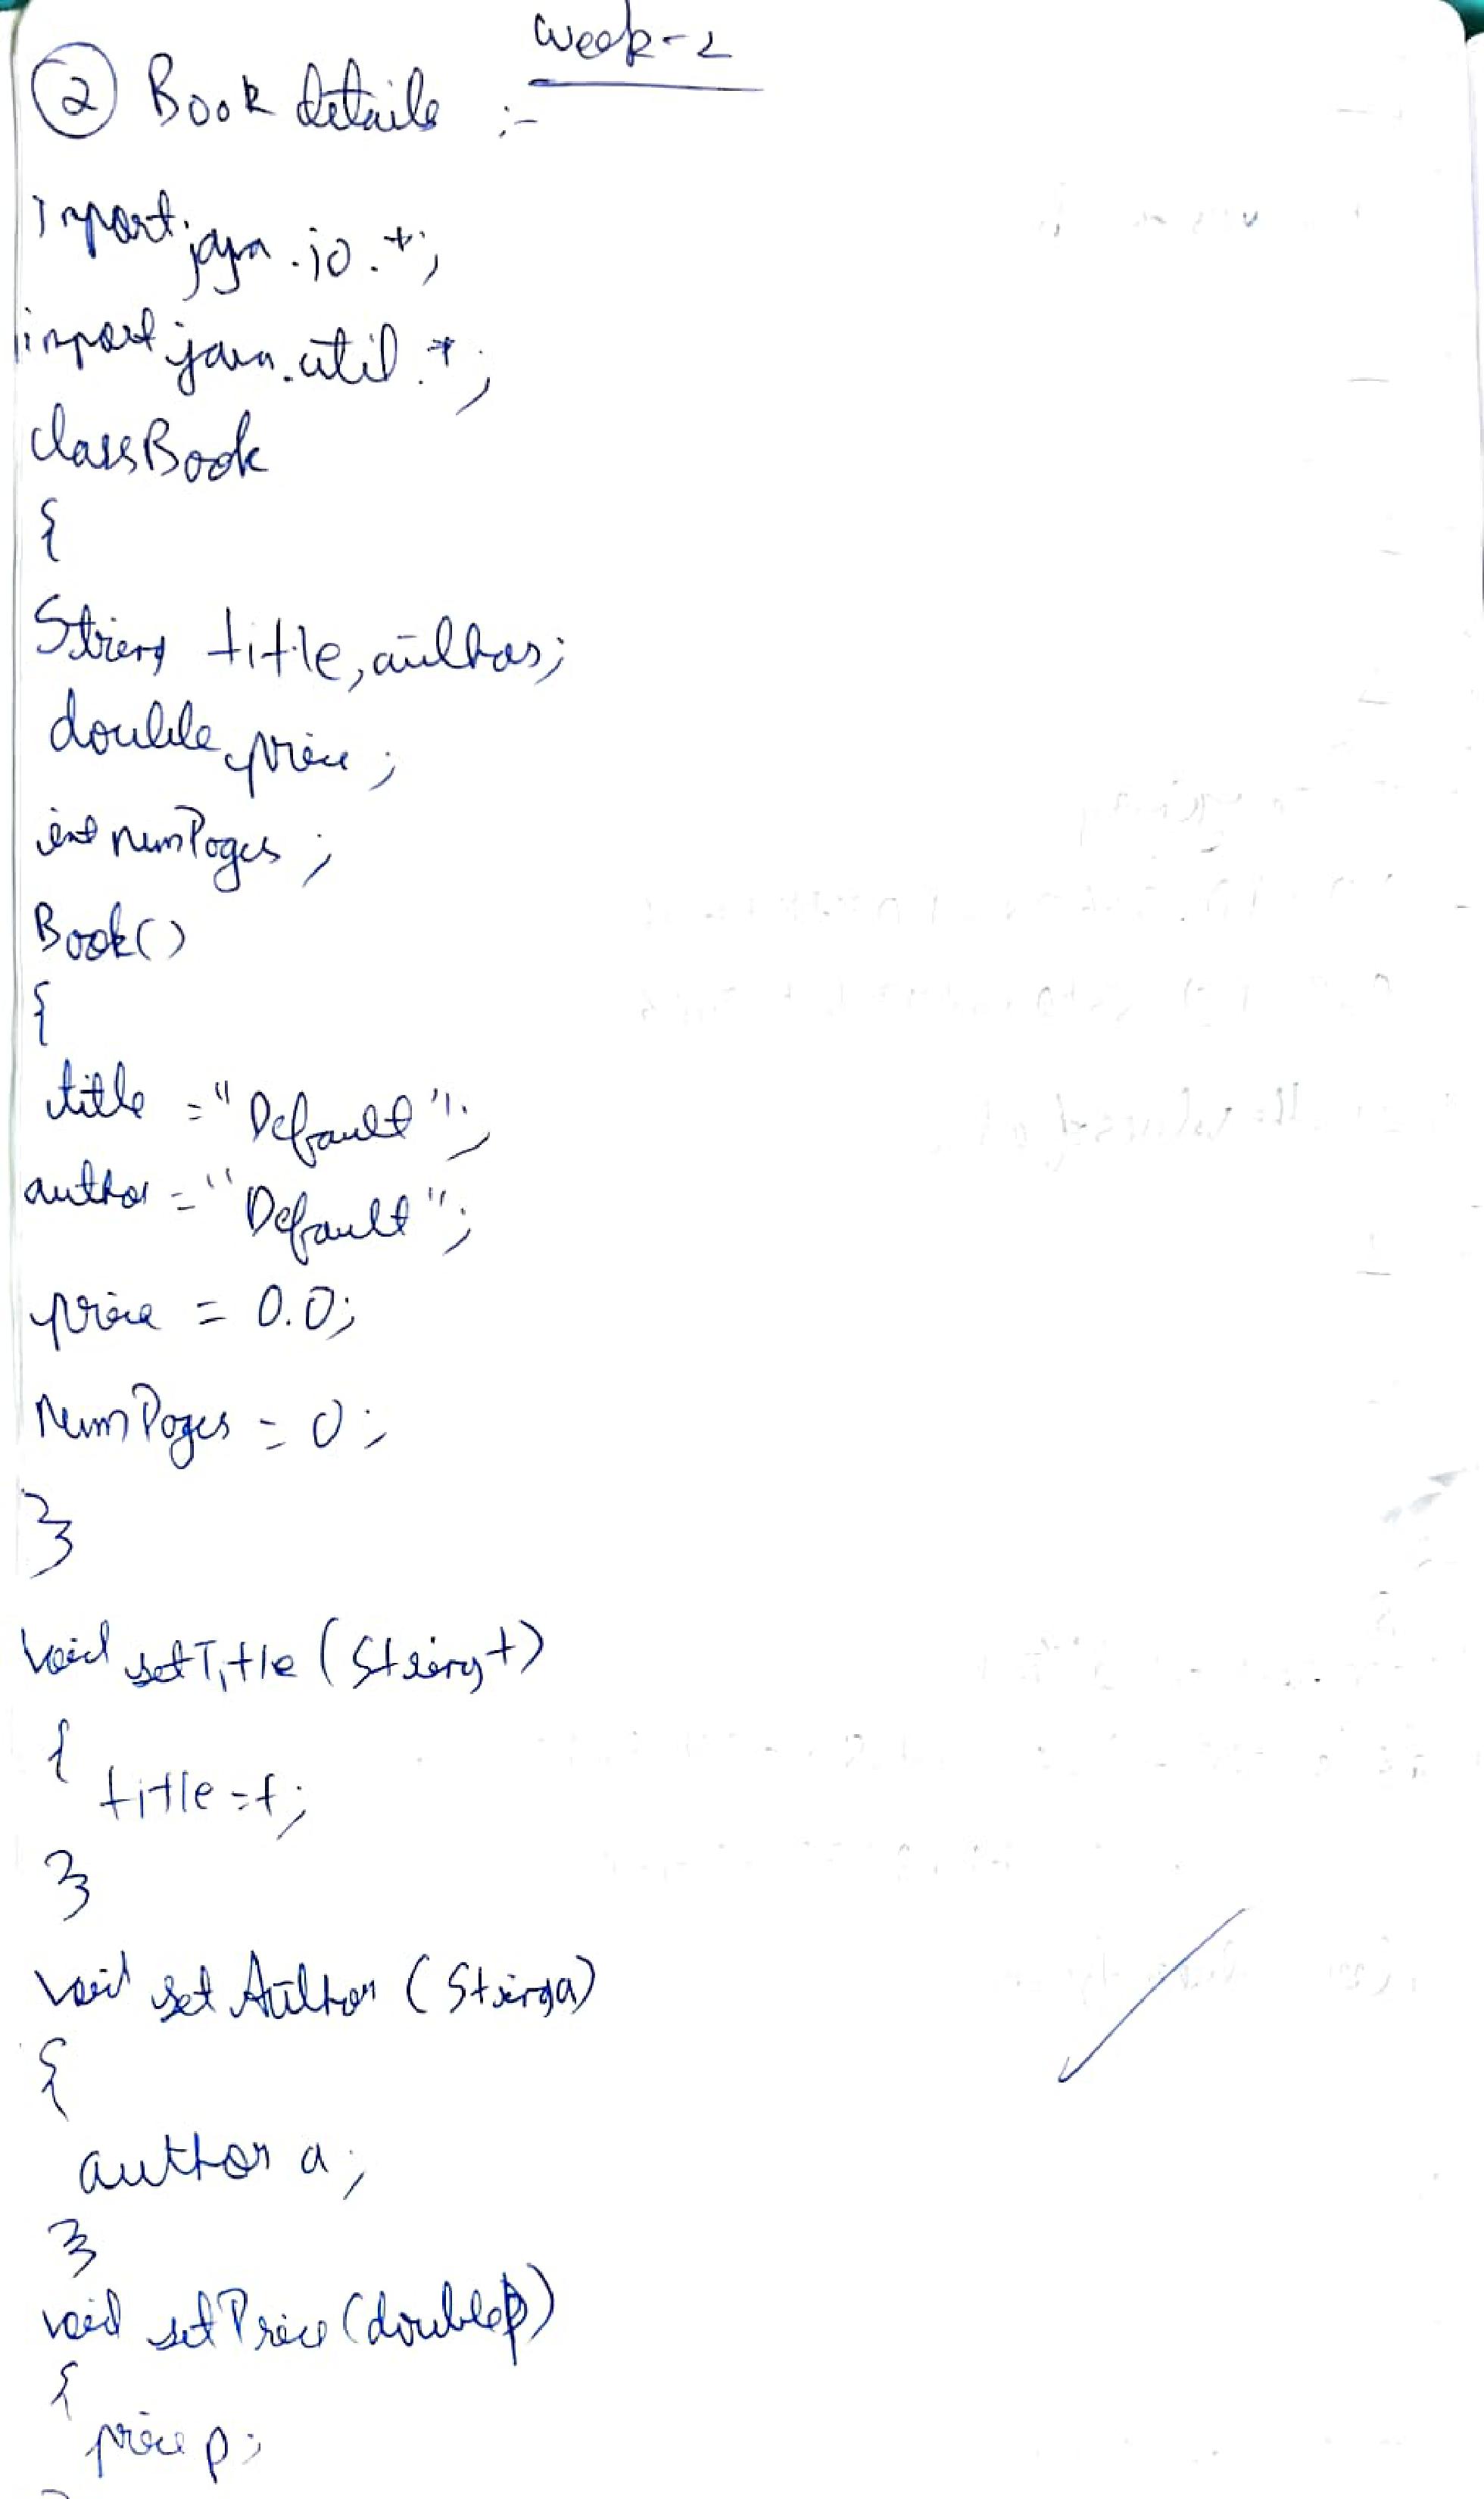 Week-2
② Book details :-
Import java.io.*;
import java.util.*;
classBook
{
String title, author;
double price;
int numPages;
Book()
{
title ="Default";
author="Default";
price = 0.0;
NumPages = 0;
}
Void setTitle (String t)
{
title=t;
}
void set Author (String a)
{
author a;
}
void setPrice (double p)
{
price p;